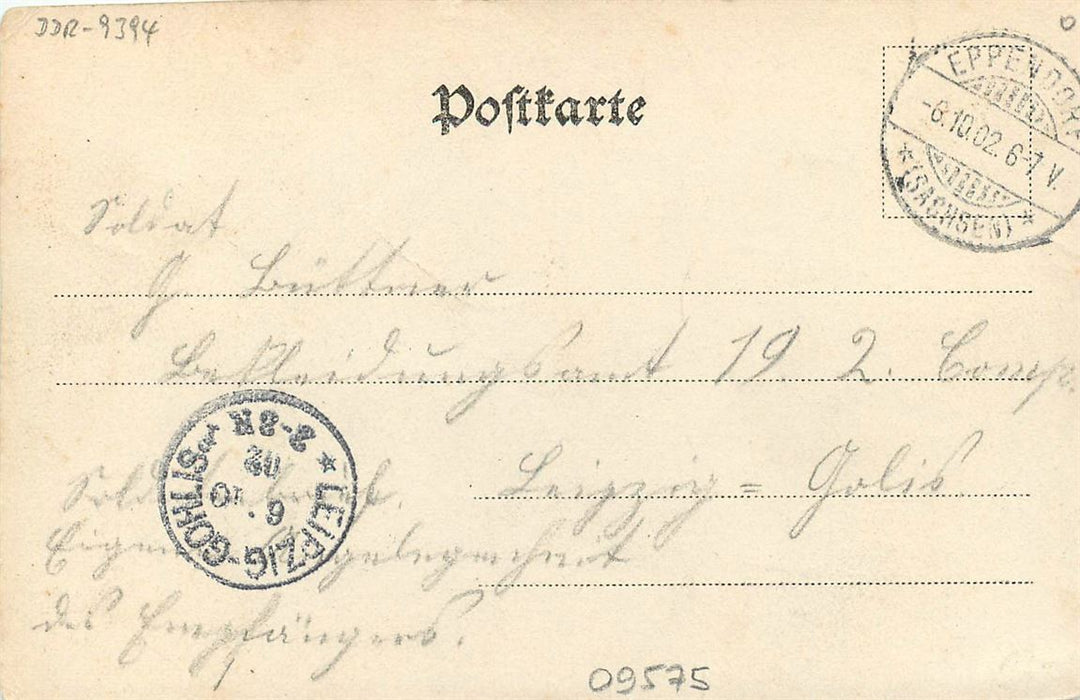 DDR-9394
EPPENDORF
-6.10.02. 6-7 V.
* (SACHSEN) *
Postkarte
Soldat
G. Büttner
Bekleidungsamt 19. 2. Comp.
Leipzig = Golis.
LEIPZIG-GOHLIS
2-3N
6. 10
02
Soldatenbrief.
Eigene Angelegenheit
des Empfängers.
09575